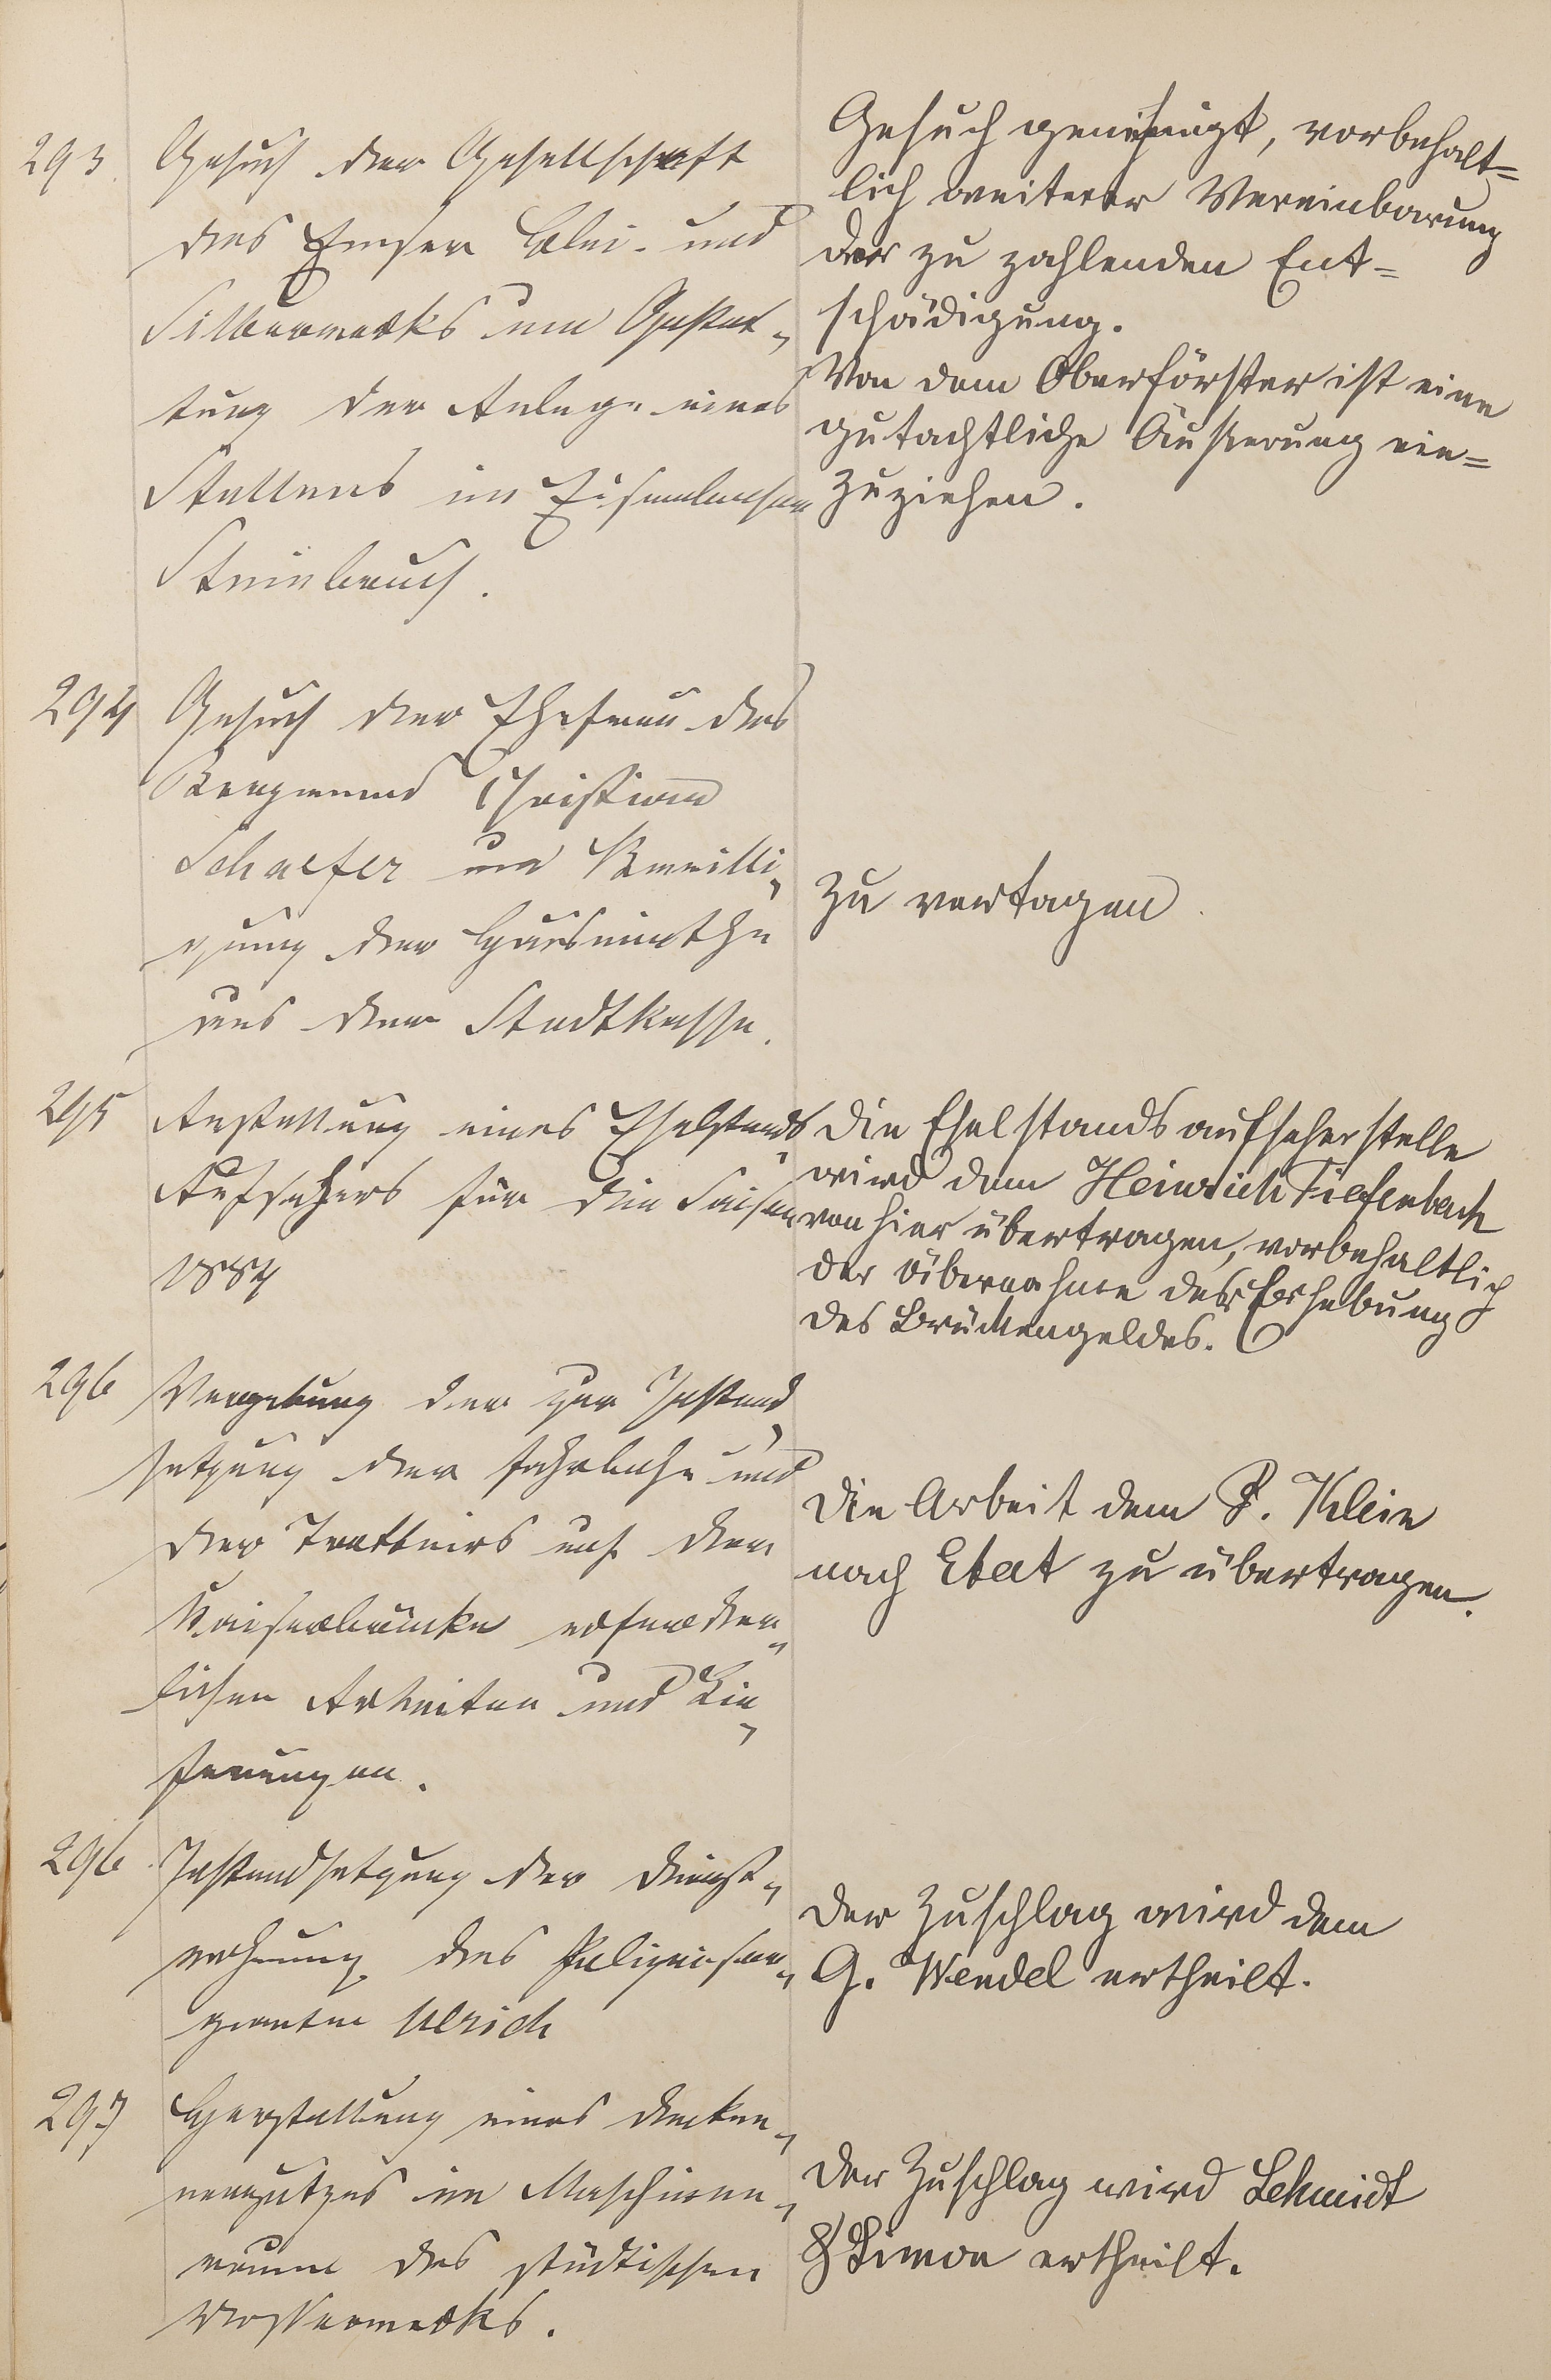 293.
Gesuch der Gesellschaft
des Emser Blei- und
Silberwerks um Gestat„
tung der Anlage eines
Stollens im Eisenbacher
Steinbruch.
Gesuch genehmigt, vorbehalt=
lich weiterer Vereinbarung
der zu zahlenden Ent=
schädigung.
Von dem Oberförster ist eine
gutachtliche Äußerung ein=
zuziehen.
294
Gesuch der Ehefrau des
Bergmanns Christian
Schaefer um Bewilli„
gung der Hausmiethe
aus der Stadtkasse.
Zu vertagen.
295
Anstellung eines Eselstands„
Aufsehers für die Saison
1884
Die Eselstandsaufseherstelle
wird dem Heinrich Tiefenbach
von hier übertragen, vorbehaltlich
der Übernahme der Erhebung
des Brückengeldes.
296
Vergebung der zur Instand„
setzung der Fahrbahn und
der Trottoirs auf der
Kaiserbrücke erforder„
lichen Arbeiten und Lie„
ferungen.
Die Arbeit dem P. Klein
nach Etat zu übertragen.
296.
Instandsetzung der Dienst„
wohnung des Polizeiser„
geanten Ulrich
Der Zuschlag wird dem
G. Wendel ertheilt.
297
Herstellung eines Decken„
verputzes im Maschinen„
raume des städtischen
Wasserwerks.
Der Zuschlag wird Schmidt
& Simon ertheilt.